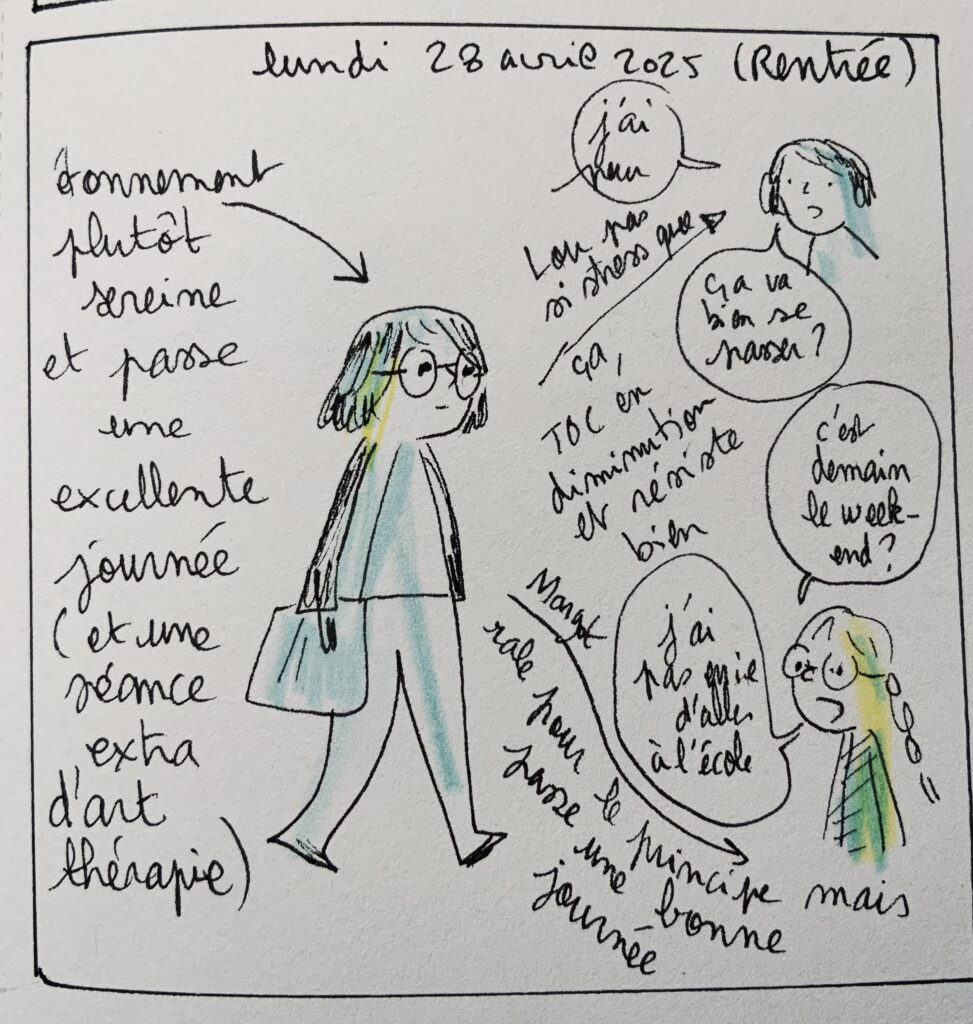 lundi 28 avril 2025 (Rentrée)
étonnement
plutôt
sereine
et passe
une
excellente
journée
(et une
séance
extra
d'art
thérapie)
j'ai
peur
Lou pas
si stress que
ça,
TOC en
diminution
et résiste
bien
ça va
bien se
passer ?
c'est
demain
le week-
end ?
j'ai
pas envie
d'aller
à l'école
Margot
rale pour le principe mais
passe une bonne
journée